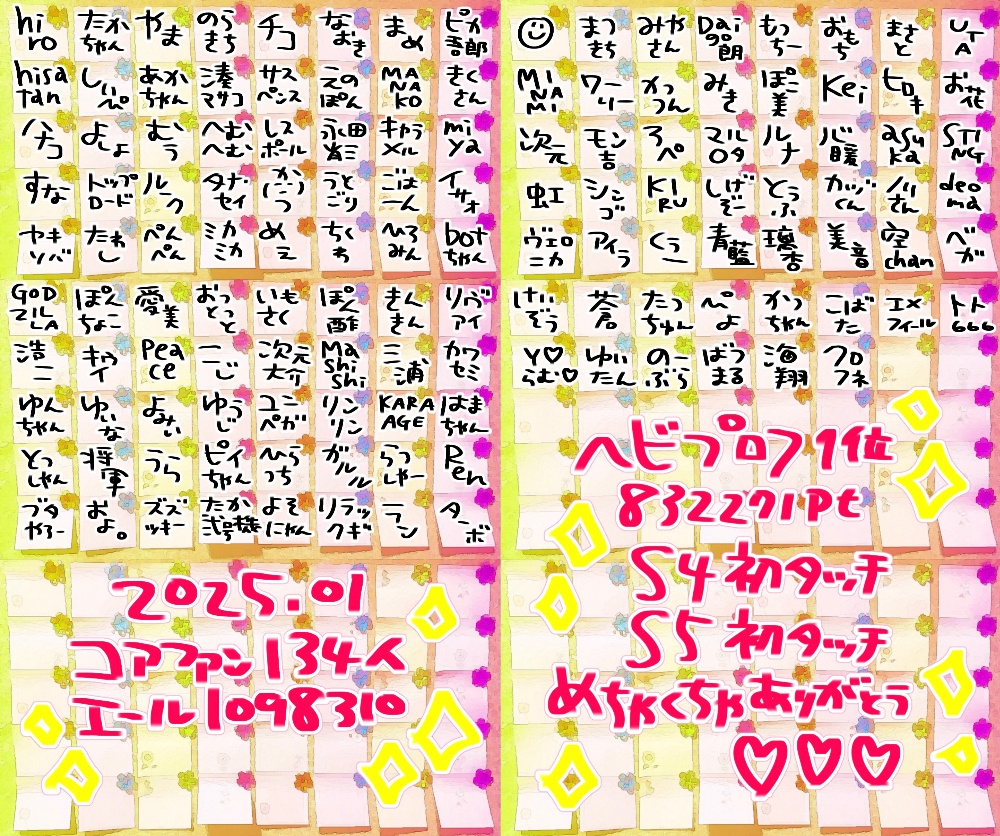 hiro たかちゃん やま のらきち チコ なおき まめ ピカ吾郎
hisatan しぃぺ あかちゃん 湊マサコ サスペンス えのぽん MANAKO きくさん
ハチコ よしよ むぅ へむへむ レスポール 永田 キャラメル miya
すな トップロード ルーク タナセイ かつ うどごり ごはーん イサオ
ヤキソバ たわし ぺんぺん ミカミカ めぇ ちくわ ひろみん botちゃん
☺ まつきち みやさん Daigo朗 もっちー おもち まさと UTA
MINAMI ワーリー かっつん みき ぽこ美 Kei ヒロキ お花
次元 モン吉 ろぺ マルロタ ルナ 心暖 asuka STING
虹 シンゴ KIRU しげぞー とうふ カヅくん ノリさん deoma
ヴェロニカ アイラ くぅ 青藍 璃杏 美音 空chan ベガ
GODZILLA ぽんちょこ 愛美 おっとっと いもさく ぽん酢 きんきん リヴァイ
浩二 キゥイ Peace こじ 次元大介 MaShiShi 三浦 カワセミ
ゆんちゃん ゆぃな よみぃ ゆうじ ユニペガ リンリン KARAAGE はまちゃん
とっしゃん 将軍 うら ピィちゃん ひらっち ガルル らっしゃー Ren
ブタやろー およ。 ズズッキー たか弐号機 よそにゃん リラックギ ラン ターボ
けいぞう 蒼 たっちゅん ぺよ かっちゃん こばた エメフィール トト666
Y♡らむ♡ ゆいたん のーぶら ばつまる 海翔 クロフネ
ヘビプロフ1位
832271Pt
S4初タッチ
S5初タッチ
めちゃくちゃありがとう
♡♡♡
2025.01
コアファン134人
エール1098310